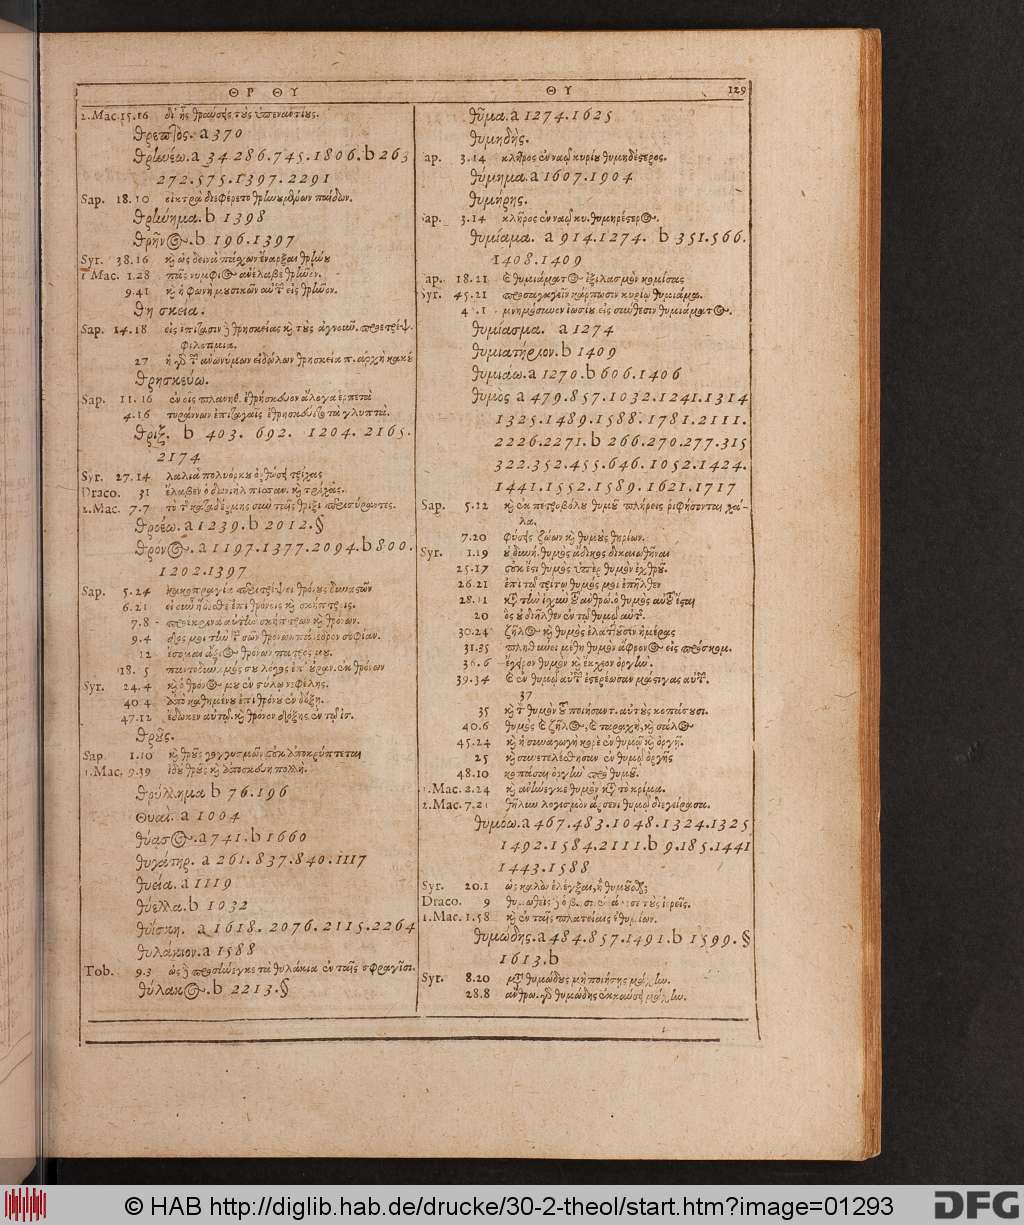 ΘΡ ΘΥ
ΘΥ 129
2.Mac.15.16 δι' ἧς θραύσεις τοὺς ὑπεναντίους.
θρεπτός. a 370
θρηνέω. a 34 286.745.1806. b 263
272.575.1397.2291
Sap. 18.10 οἰκτρὰ διεφέρετο θρηνουμένων παίδων.
θρήνημα. b 1398
θρῆνος. b 196.1397
Syr. 38.16 καὶ ὡς δεινὰ πάσχων ἔναρξαι θρήνου
1 Mac. 1.28 πᾶς νυμφίος ἀνέλαβε θρῆνον.
9.41 καὶ ἡ φωνὴ μουσικῶν αὐτῶν εἰς θρῆνον.
θρησκεία.
Sap. 14.18 εἰς ἐπίτασιν θρησκείας καὶ τοὺς ἀγνοοῦν. προετρέψ.
φιλοτιμία.
27 ἡ τῶν ἀνωνύμων εἰδώλων θρησκεία π. ἀρχὴ κακοῦ
θρησκεύω.
Sap. 11.16 ἐν οἷς πλανηθ. ἐθρήσκευον ἄλογα ἑρπετὰ
4.16 τυράννων ἐπιταγαῖς ἐθρησκεύετο τὰ γλυπτά.
θρίξ. b 403. 692. 1204. 2165.
2174
Syr. 27.14 λαλιὰ πολυόρκου ὀρθώσει τρίχας
Draco. 31
2.Mac. 7.7
θροέω. a 1239. b 2012. §
θρόνος. a 1197.1377.2094. b 800.
1202.1397
Sap. 5.24 κακοπραγία περιτρέψει θρόνους δυναστῶν
6.21 εἰ οὖν ἥδεσθε ἐπὶ θρόνοις καὶ σκήπτροις.
7.8 προέκρινα αὐτὴν σκήπτρων καὶ θρόνων.
9.4 δός μοι τὴν τῶν σῶν θρόνων πάρεδρον σοφίαν.
12 ἔσομαι ἄξιος θρόνων πατρός μου.
18. 5 παντοδύναμός σου λόγος ἀπ' οὐραν. ἐκ θρόνων
Syr. 24.4 καὶ ὁ θρόνος μου ἐν στύλῳ νεφέλης.
40 4 ἀπὸ καθημένου ἐπὶ θρόνου ἐν δόξῃ.
47.12 ἔδωκεν αὐτῷ καὶ θρόνον δόξης ἐν τῷ ἰσ.
θροῦς.
Sap. 1.10 καὶ θροῦς γογγυσμῶν οὐκ ἀποκρύπτεται
1.Mac. 9.39 ἰδοὺ θροῦς καὶ ἀποσκευὴ πολλή.
θρύλλημα b 76.196
Θύαι. a 1004
θύασος. a 741. b 1660
θυγάτηρ. a 261.837.840.1117
θυεία. a 1119
θύελλα. b 1032
θυΐσκη. a 1618. 2076.2115.2264
θυλάκιον. a 1588
Tob. 9.3 ὡς προσήνεγκε τὰ θυλάκια ἐν ταῖς σφραγῖσι.
θύλακος. b 2213. §
θῦμα. a 1274.1625
θυμηδής.
ap. 3.14 κλῆρος ἐν ναῷ κυρίου θυμηδέστερος.
θύμημα. a 1607.1904
θυμήρης.
ap. 3.14 κλῆρος ἐν ναῷ κυ. θυμηρέστερος.
θυμίαμα. a 914.1274. b 351.566.
1408.1409
ap. 18.21 καὶ θυμιάματος ἐξιλασμὸν κομίσας
Syr. 45.21 προσαγαγεῖν κάρπωσιν κυρίῳ θυμίαμα.
4.1 μνημόσυνον ἰωσίου εἰς σύνθεσιν θυμιάματος.
θυμίασμα. a 1274
θυμιατήριον. b 1409
θυμιάω. a 1270. b 606.1406
θυμός a 479.857.1032.1241.1314
1325.1489.1588.1781.2111.
2226.2271. b 266.270.277.315
322.352.455.646.1052.1424.
1441.1552.1589.1621.1717
Sap. 5.12 καὶ ἐκ πετροβόλου θυμοῦ πλήρεις ῥιφήσονται χά-
λα.
7.20 φύσεις ζώων καὶ θυμοὺς θηρίων.
Syr. 1.19 οὐ δυνή. θυμὸς ἄδικος δικαιωθῆναι
25.17 οὐκ ἔστι θυμὸς ὑπὲρ θυμὸν ἐχθροῦ.
26.21 ἐπὶ τῷ τρίτῳ θυμός μοι ἐπῆλθεν
28.11 κατὰ τὴν ἰσχὺν τοῦ ἀνθρώ. ὁ θυμὸς αὐτοῦ ἔσται
20 ὃς οὐ διῆλθεν ἐν τῷ θυμῷ αὐτῆς.
30.24 ζῆλος καὶ θυμὸς ἐλαττοῦσιν ἡμέρας
31.35 πληθύνει μέθη θυμὸν ἄφρονος εἰς πρόσκομ.
36.6 ἔγειρον θυμὸν καὶ ἔκχεον ὀργήν.
39.34 καὶ ἐν θυμῷ αὐτῶν ἐστερέωσαν μάστιγας αὐτῶν.
37
35 καὶ τὸν θυμὸν τοῦ ποιήσαντ. αὐτοὺς κοπάσουσι.
40.6 θυμὸς καὶ ζῆλος, καὶ ταραχή, καὶ σάλος
45.24 καὶ ἡ συναγωγὴ κορὲ ἐν θυμῷ καὶ ὀργῇ.
25 καὶ συνετελέσθησαν ἐν θυμῷ ὀργῆς
48.10 κοπάσαι ὀργὴν πρὸ θυμοῦ.
1.Mac. 2.24 καὶ ἀνήνεγκε θυμὸν κατὰ τὸ κρίμα.
2.Mac. 7.21 θῆλυν λογισμὸν ἄρσενι θυμῷ διεγείρασα.
θυμόω. a 467.483.1048.1324.1325
1492.1584.2111. b 9.185.1441
1443.1588
Syr. 20.1 ὡς καλὸν ἐλέγξαι, ἢ θυμοῦσθαι
Draco. 9
1.Mac. 1.58 καὶ ἐν ταῖς πλατείαις ἐθυμίων.
θυμώδης. a 484.857.1491. b 1599. §
1613. b
Syr. 8.20 μετὰ θυμώδους μὴ ποιήσῃς μάχην.
28.8 ἄνθρω. θυμώδης ἐκκαύσει μάχην.
© HAB http://diglib.hab.de/drucke/30-2-theol/start.htm?image=01293
DFG